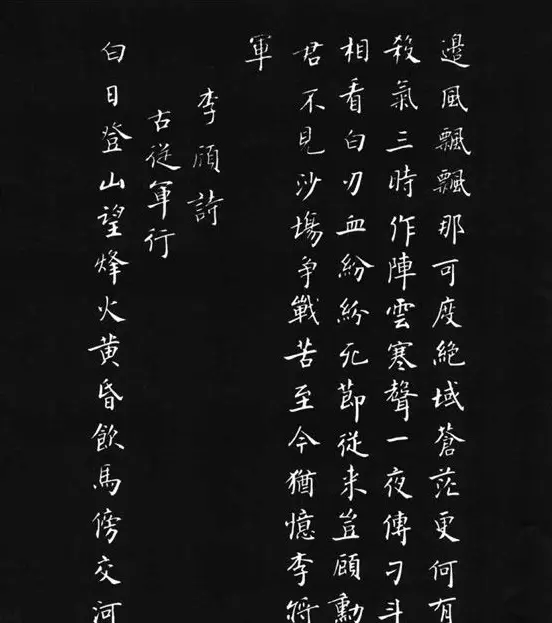 邊風飄飄那可度絕域蒼茫更何有
殺氣三時作陣雲寒聲一夜傳刁斗
相看白刃血紛紛死節從来豈顧勳
君不見沙塲爭戰苦至今猶憶李將
軍
李頎詩
古從軍行
白日登山望烽火黄昏飲馬傍交河